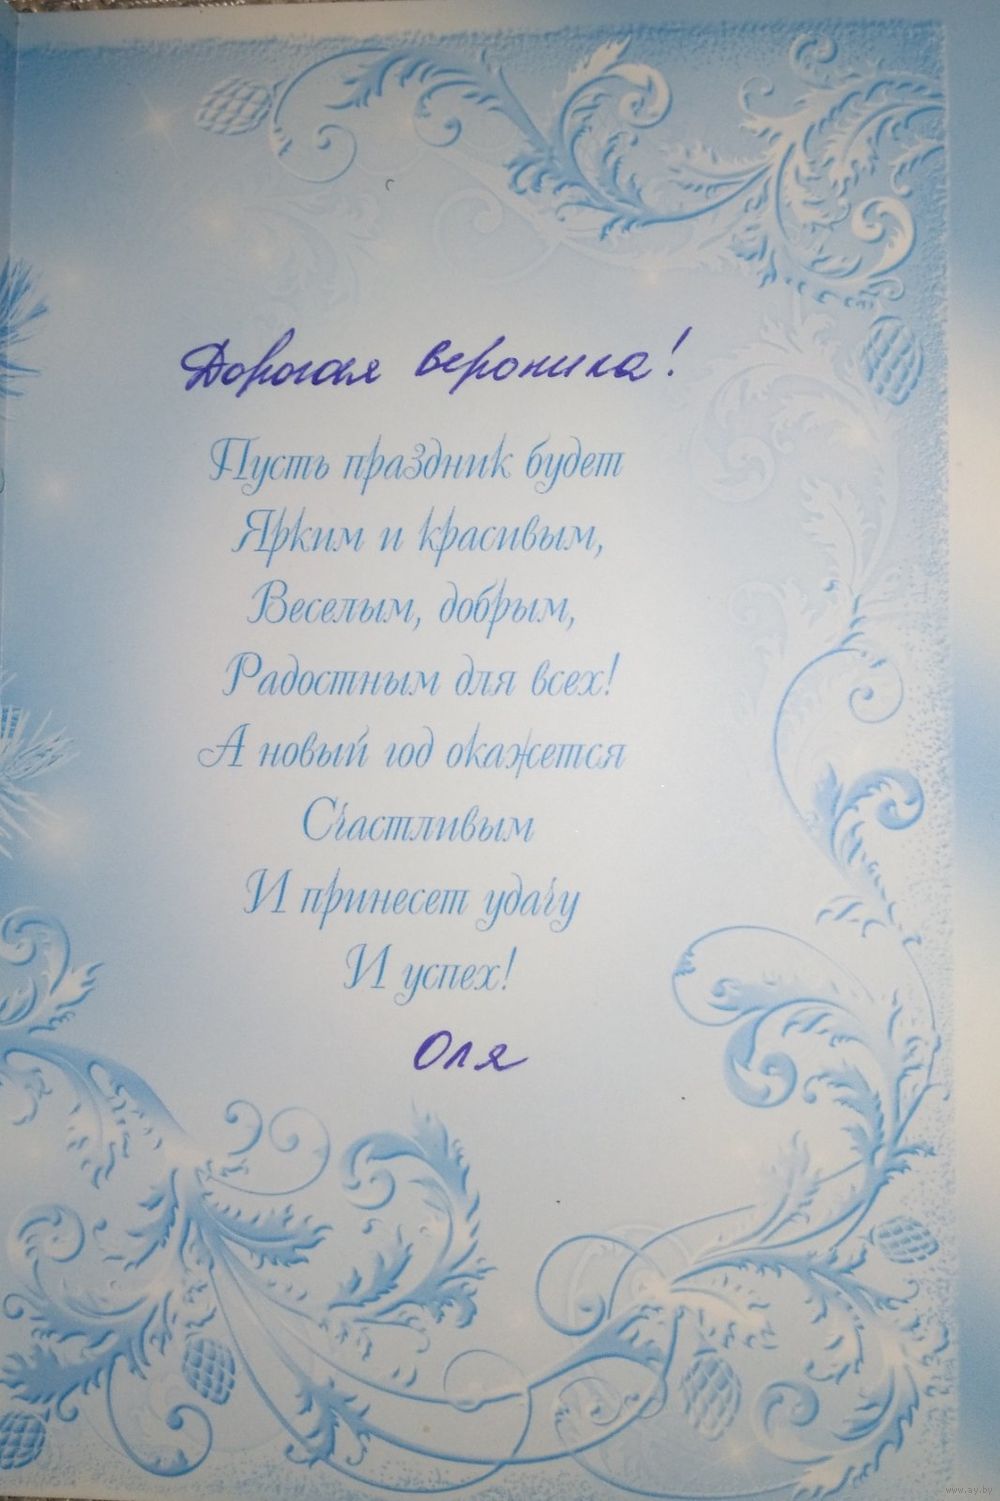 Дорогая вероника!
Пусть праздник будет
Ярким и красивым,
Веселым, добрым,
Радостным для всех!
А новый год окажется
Счастливым
И принесет удачу
И успех!
Оля
www.ay.by